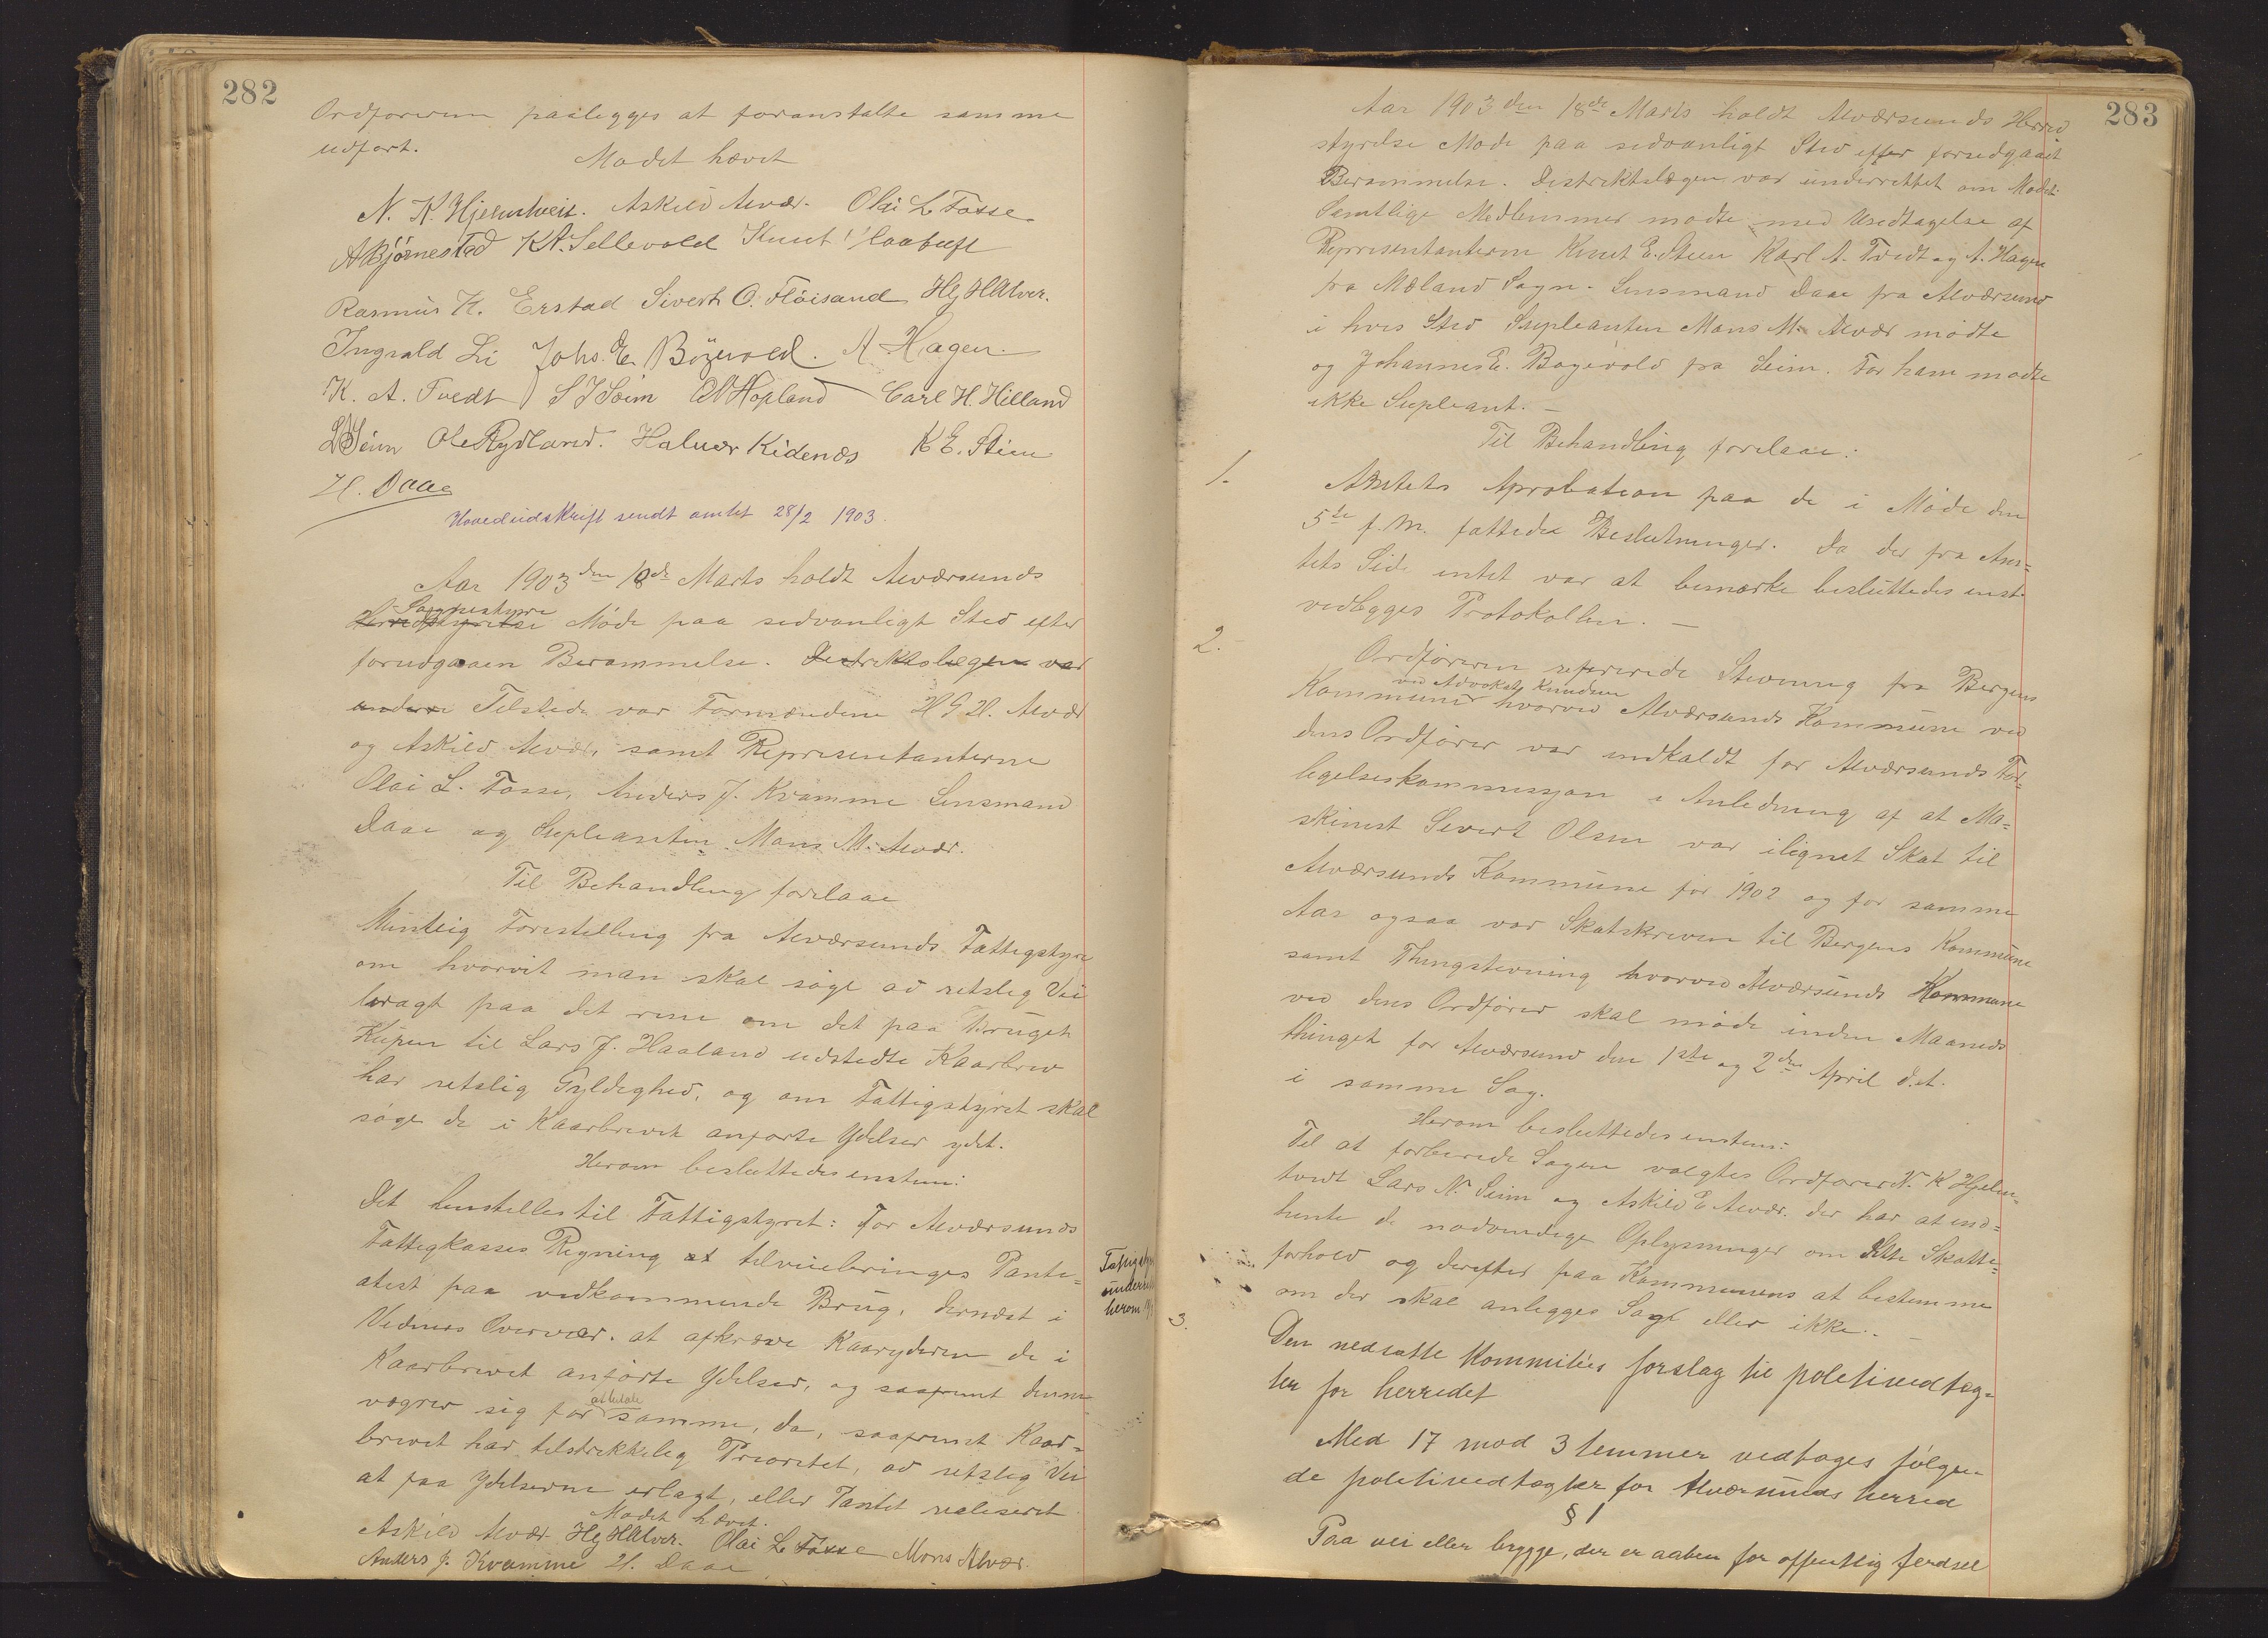 282
Ordføreren paalegges at foranstalte samme
udført.
Mødet hævet
N. K. Hjelmtveit. Askild Alvær. Olai L Fosse
A Bjørnestad K A. Sellevold Knut
Rasmus K. Erstad Sivert O. Fløisand HGHAlver.
Ingvald Li Johs. E. Bøgevold. A Hagen.
K. A. Tvedt S J Seim Hopland Carl H. Hilland
L N Seim Ole Rydland. Halvor Kidenæs K E. Steen
H. Daae
Hovedudskrift sendt amtet 28/2 1903.
Aar 1903 den 18de Marts holdt Alværsunds
Sognestyre
Herredstyrelse Møde paa sedvanligt Sted efter
forudgaaen Berammelse. Destriktslægen var
undere Tilstede var Formændene H G H. Alvær
og Askild Alvær, samt Representanterne
Olai L. Fosse, Anders J. Kvamme Lensmand
Daae og Supleanten Mons M. Alvær.
Til Behandling forelaae
Mintlig Forestelling fra Alværsunds Fattigstyre
om hvorvit man skal søge ad retslig Vei
bragt paa det rene om det paa Bruget
Kupen til Lars J. Haaland udstedte Kaarbrev
har retslig Gyldighed, og om Fattigstyret skal
søge de i Kaarbrevet anførte Ydelser ydet.
Herom besluttedes enstem:
Det henstilles til Fattigstyret: For Alværsunds
Fattigkasses Regning at tilveiebringes Pante=
atest paa vedkommende Brug, dernæst i
Vidners Overvær. at afkræve Kaaryderen de i
Kaarbrevet anførte Ydelser, og saafremt denne
at betale
vegrer sig for samme, da, saafremt Kaar=
brevet har tilstrekkelig Prioritet, ad retslig Vei
at faa Ydelserne erlagt, eller Pantet realiseret
Mødet hævet.
Askild Alvær HGHAlver. Olai L Fosse Mons Alvær.
Anders J. Kvamme H. Daae
Fattigstyret
underrettet
herom
283
Aar 1903 den 18de Marts holdt Alværsunds Herred
styrelse Møde paa sedvanligt Sted efter forudgaaet
Berammelse. Destriktslægen var underrettet om Mødet.
Samtlige Medlemmer mødte med Undtagelse af
Representanterne Knut E. Steen Karl A. Tvedt og A. Hagen
fra Mæland Sogn. Lensmand Daae fra Alværsund
i hvis Sted Supleanten Mons M. Alvær mødte
og Johannes E. Bøgevold fra Seim. For ham mødte
ikke Supleant. —
Til Behandling forelaae:
1.
Amtets Aprobation paa de i Møde den
5te f. M. fattede Beslutninger. Da der fra Am=
tets Side intet var at bemærke besluttedes enst.
vedlegges Protokollen. —
2.
Ordføreren refererede Stevning fra Bergens
ved Advokat Knudsen
Kommune hvorved Alværsunds Kommune ved
dens Ordfører var indkaldt for Alværsunds For=
legelseskommissjon i Anledning af at Ma=
skinist Sivert Olsen var ilignet Skat til
Alværsunds Kommune for 1902 og for samme
Aar ogsaa var Skatskreven til Bergens Kommune
samt Thingstevning hvorved Alværsunds Kommune
ved dens Ordfører skal møde inden Maaneds
thinget for Alværsund den 1ste og 2den April d. A.
i samme Sag.
Herom besluttedes enstem:
Til at forberede Sagen valgtes Ordfører N. K Hjelm=
tveit Lars N. Seim og Askild E Alvær. der har at ind=
hente de nødvendige Oplysninger om dette Skatte=
forhold og derefter paa Kommunens at bestemme
om der skal anlegges Sag eller ikke. —
3.
Den nedsatte Kommities forslag til politivedtæg=
ter for herredet
Med 17 mod 3 temmer vedtoges følgen=
de politivedtægter for Alversunds herred
§ 1
Paa vei eller brygge, der er aaben for offentlig ferdsel